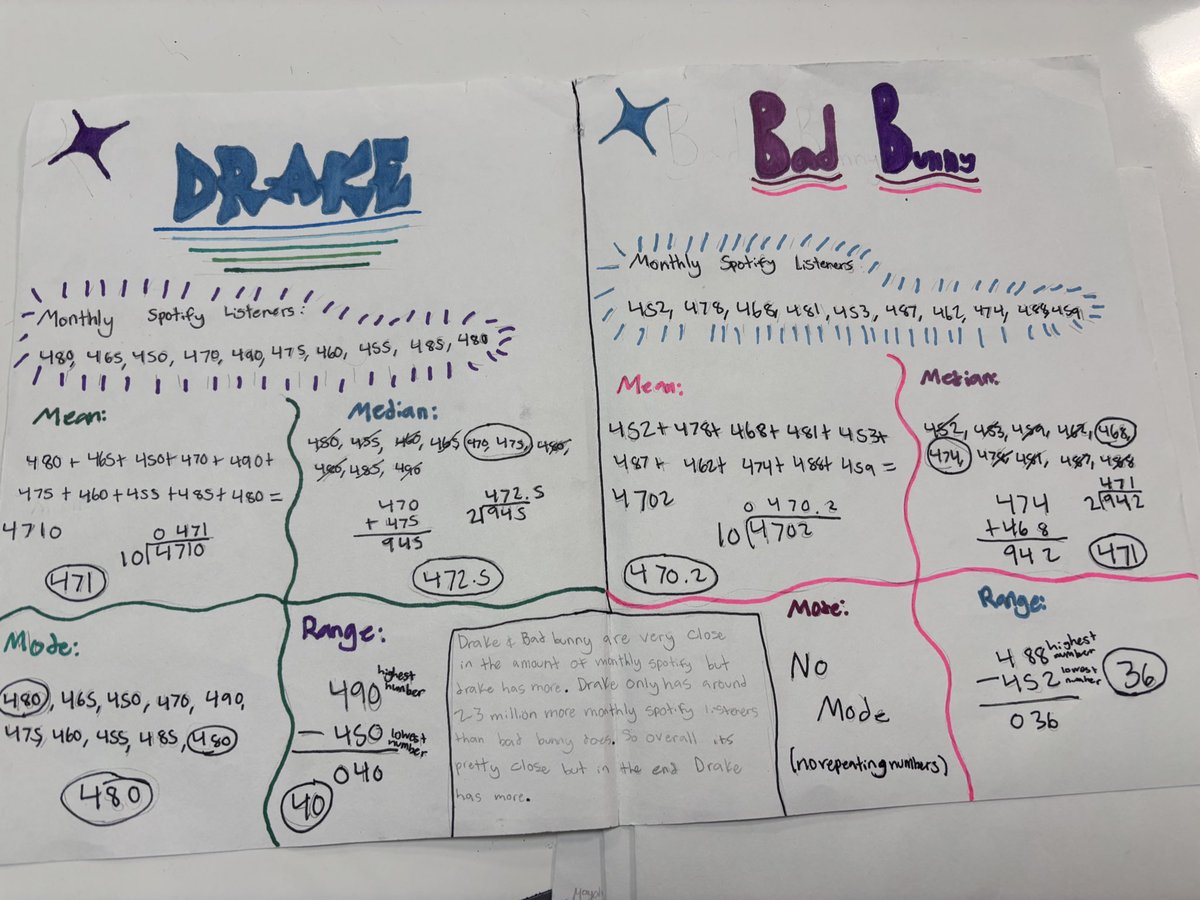 DRAKE
Monthly Spotify Listeners:
480, 465, 450, 470, 490, 475, 460, 455, 485, 480
Mean:
480 + 465+ 450+ 470 + 490+
475 + 460 + 455 + 485 + 480 =
4710
0 471
10 4710
471
Median:
450, 455, 460, 465, 470, 475, 480,
480, 485, 490
470
+ 475
945
472.5
2 945
472.5
Mode:
480, 465, 450, 470, 490,
475, 460, 455, 485, 480
480
Range:
490 highest number
- 450 lowest number
040
40
Drake & Bad bunny are very close
in the amount of monthly spotify but
drake has more. Drake only has around
2-3 million more monthly spotify listeners
than bad bunny does. So overall its
pretty close but in the end Drake
has more.
Bad Bunny
Monthly Spotify Listeners
452, 478, 468, 481, 453, 487, 462, 474, 488, 459
Mean:
452 + 478 + 468 + 481 + 453 +
487 + 462 + 474 + 488 + 459 =
4702
0 470.2
10 4702
470.2
Median:
452, 453, 459, 462, 468,
474, 478, 481, 487, 488
474
+468
942
471
2 942
471
Mode:
No
Mode
(no repeating numbers)
Range:
488 highest number
- 452 lowest number
036
36